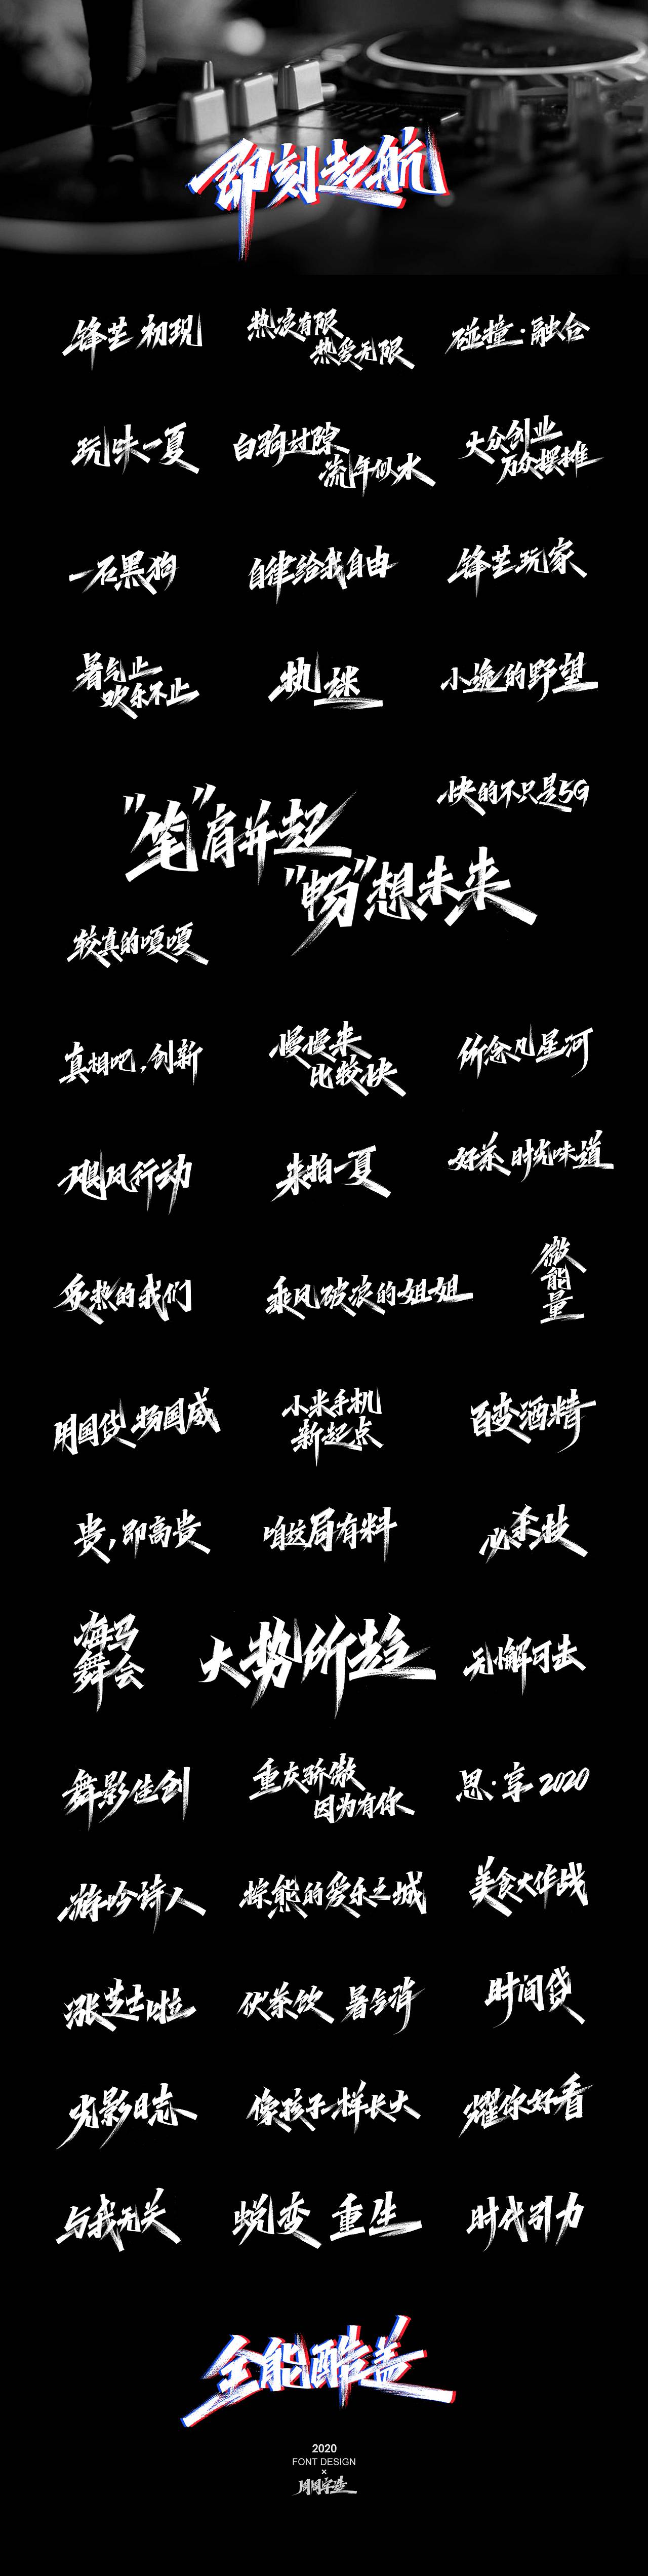 即刻起航
锋芒 初现
热浪有限
热爱无限
碰撞·融合
玩味一夏
白驹过隙
流年似水
大众创业
万众摆摊
一石黑狗
自律给我自由
锋芒玩家
暑气止
欢乐不止
执迷
小逸的野望
快的不只是5G
"笔"肩并起
"畅"想未来
较真的嘎嘎
真相吧,创新
慢慢来
比较快
所念凡星河
飓风行动
来拍一夏
好茶 时光味道
炙热的我们
乘风破浪的姐姐
微
能
量
用国货 扬国威
小米手机
新起点
百变酒精
贵,即高贵
咱这局有料
必杀技
海马
舞会
大势所趋
无懈可击
舞影佳创
重庆骄傲
因为有你
思·享 2020
游吟诗人
棕熊的爱乐之城
美食大作战
涨芝士啦
伏茶饮 暑气消
时间贷
光影日志
像孩子一样长大
耀你好看
与我无关
蜕变 重生
时代引力
全能酷盖
2020
FONT DESIGN
×